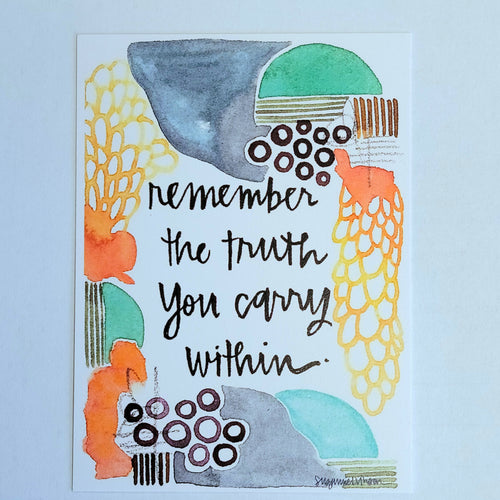 remember
the truth
You carry
within.